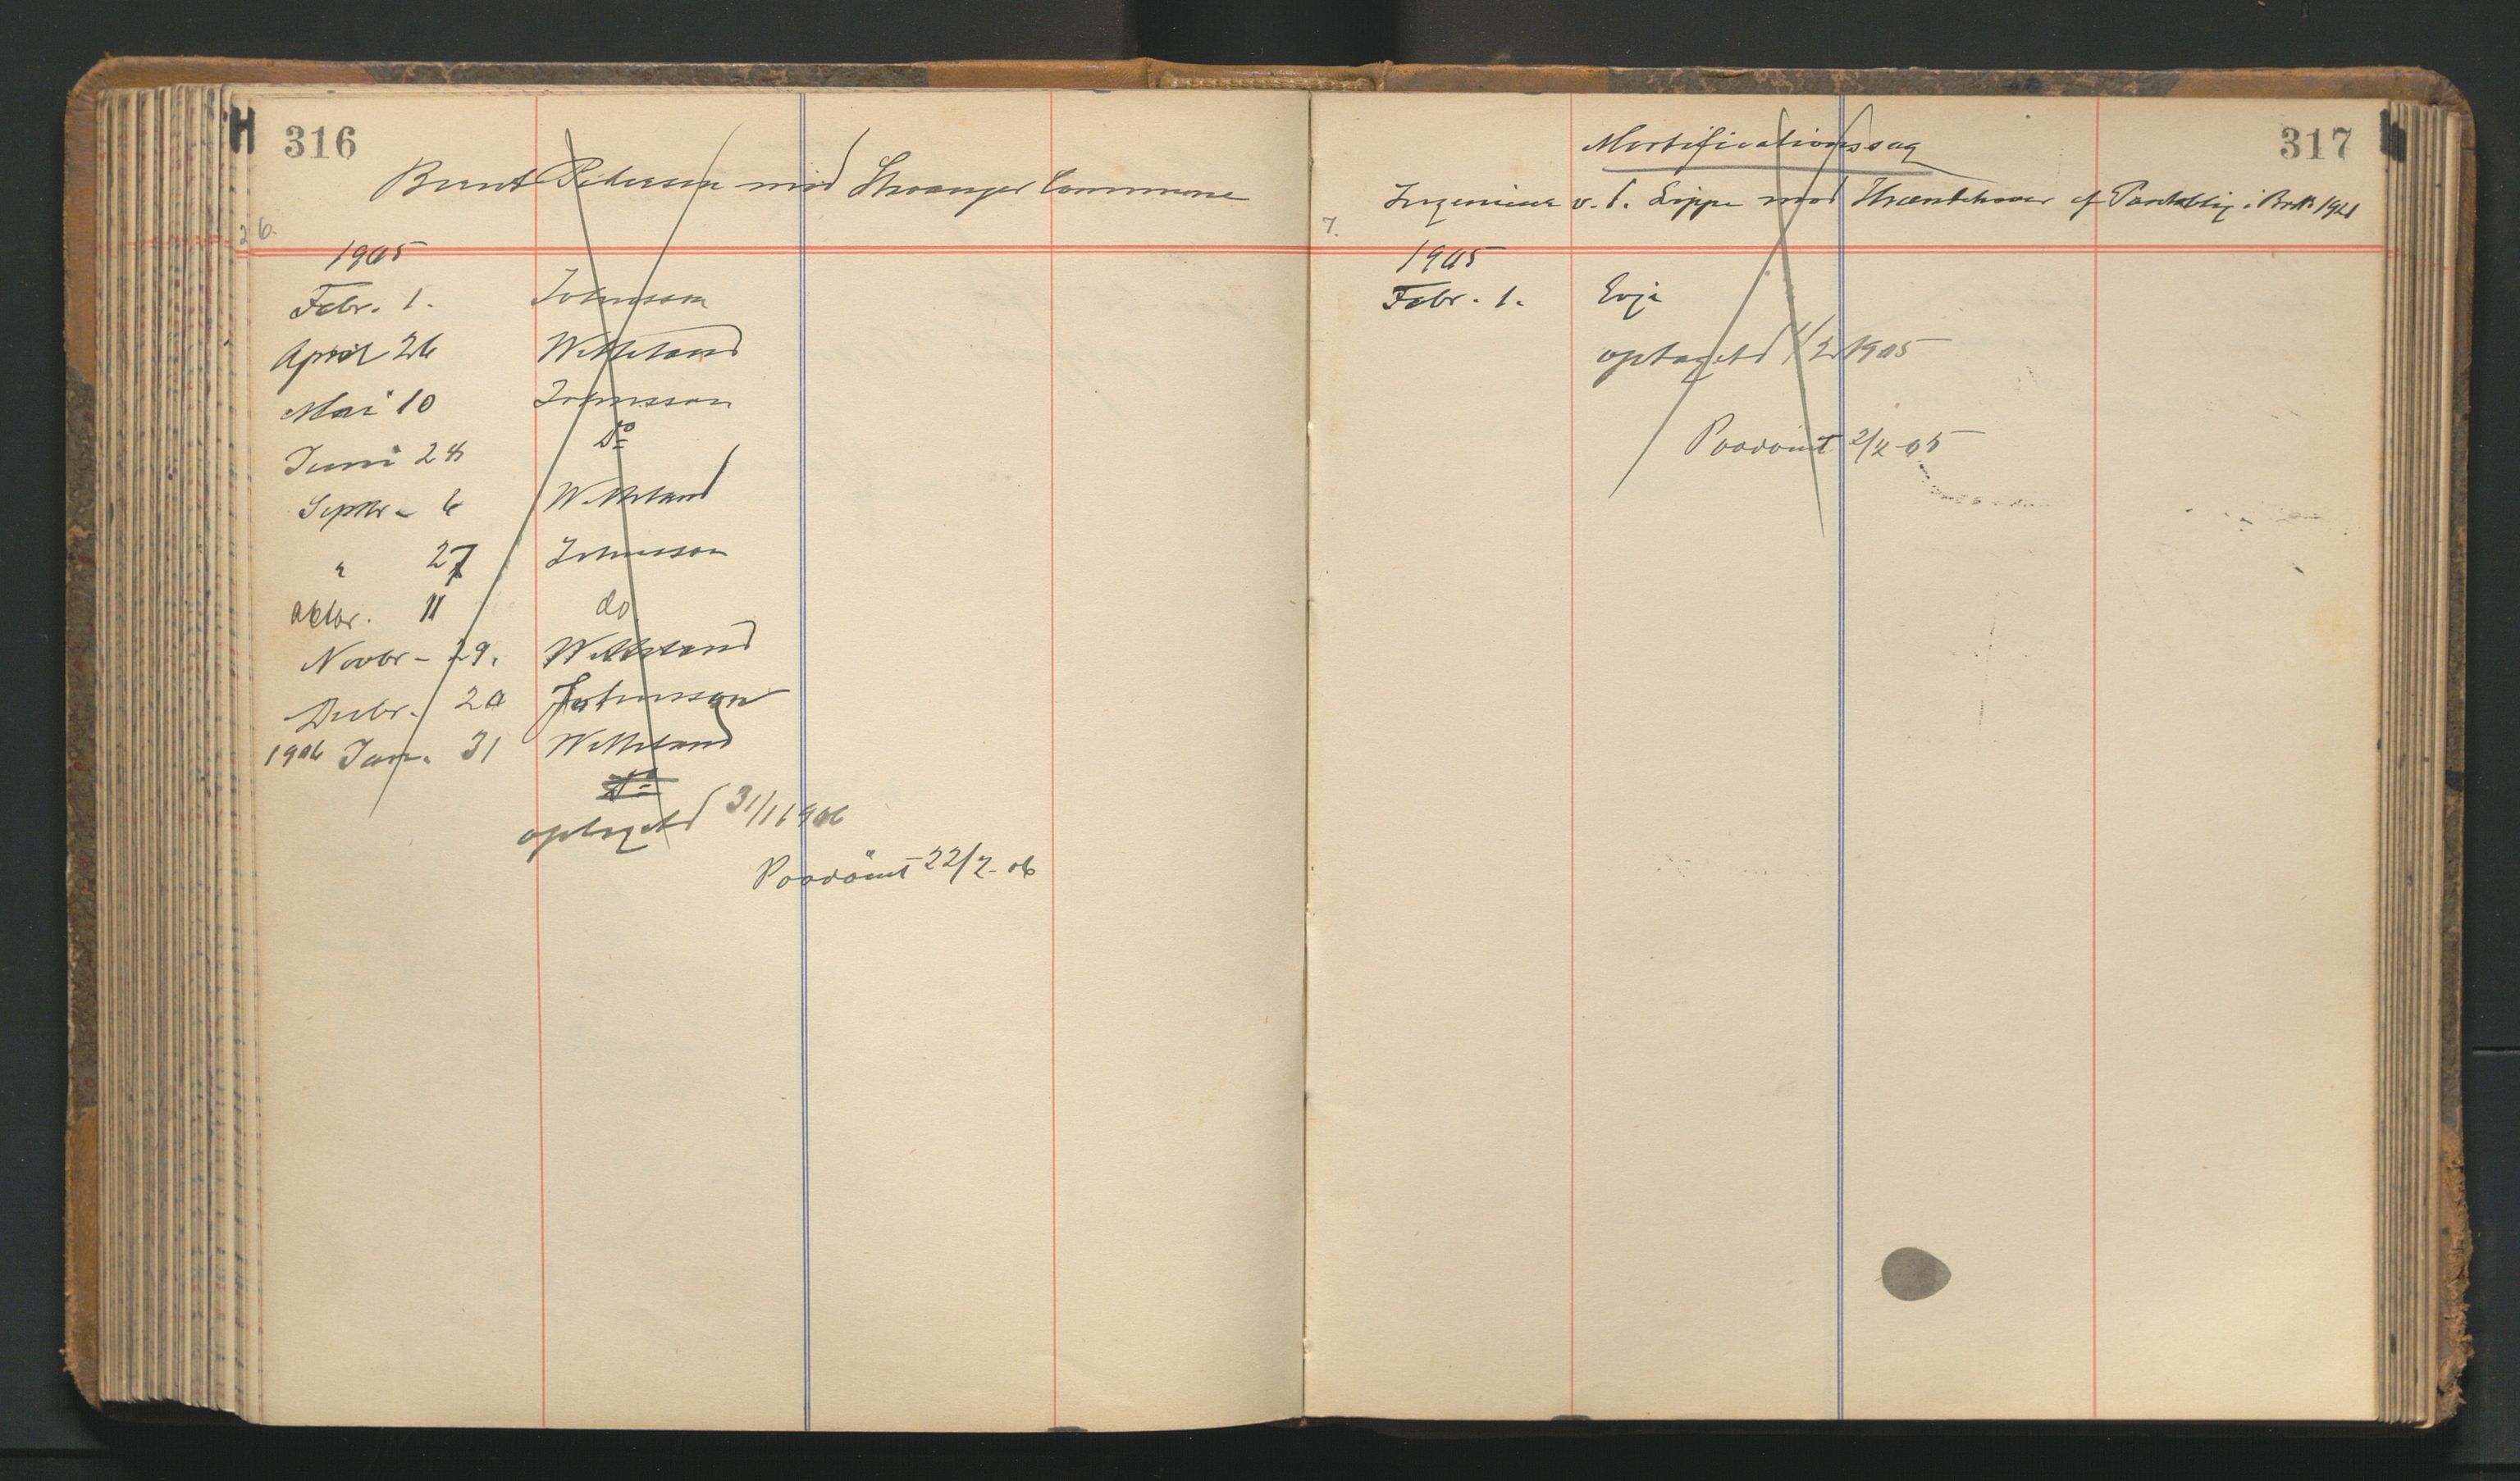 316
Bernt Pedersen mod Stavanger Commune
26.
1905
Febr. 1. Johnsson
April 26 Wetteland
Mai 10 Johnsson
Juni 28 Do
Septbr - 6 Wetteland
" 27 Johnsson
Oktbr. 11 do
Novbr - 29. Wetteland
Decbr. 20 Johnsson
1906 Jan. 31 Wetteland
Do
optaget 31/1 1906
Paadömt 22/2 - 06
317
Mortificationssag
Ingenieur v. d. Lippe mod Ihændehaver af
7.
1905
Febr. 1. Evje
optaget 1/2 1905
Paadömt 2/2 - 05